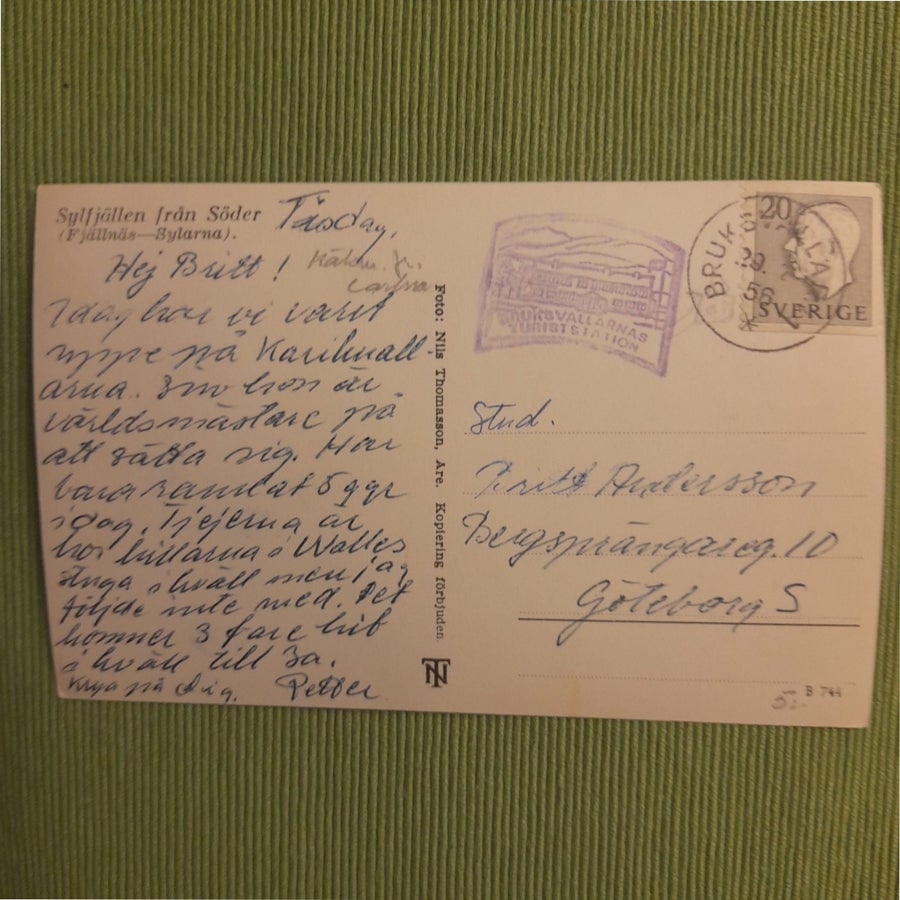 Sylfjällen från Söder
(Fjällnäs—Sylarna).
Tisdag.
Hej Britt!
Idag har vi varit
uppe på Kariknall-
arna. Son hon är
världsmästare på
att sätta sig. Har
bara ramlat 5 ggr
idag. Tjejerna är
hos killarna i Walles
stuga i kväll men jag
följde inte med. Det
kommer 3 fare hit
i kväll till 3a.
Krya på dig. Petter
Foto: Nils Thomasson, Åre. Kopiering förbjuden
NT
BRUKSVALLARNAS
TURISTSTATION
BRUKSVALLARNA
29.
56
20
SVERIGE
Stud.
Britt Andersson
Bergsprängareg. 10
Göteborg S
B 744
5:-